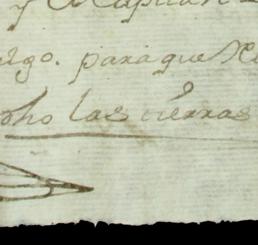 y el Capitan
algo. para que Re
dho las tierras